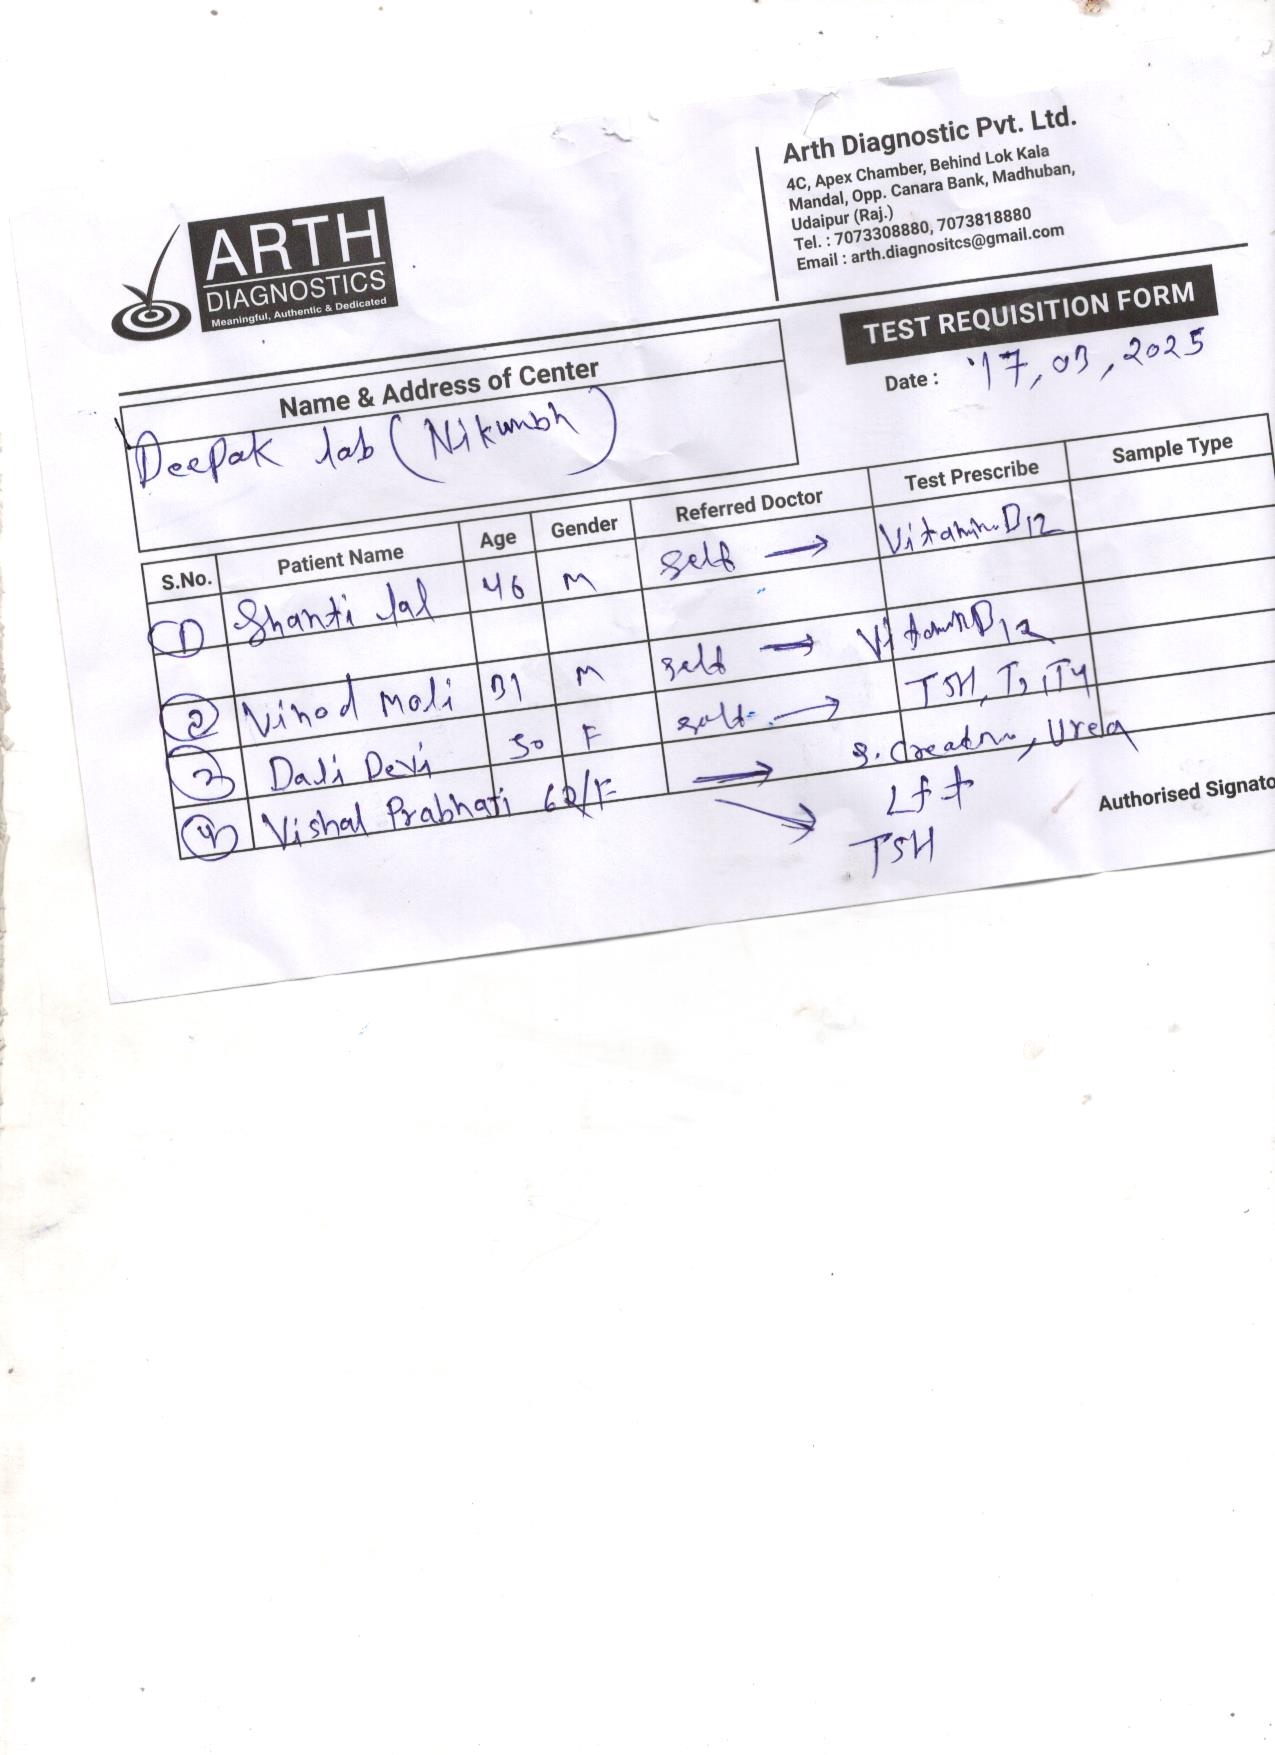 ARTH
DIAGNOSTICS
Meaningful, Authentic & Dedicated
Arth Diagnostic Pvt. Ltd.
4C, Apex Chamber, Behind Lok Kala
Mandal, Opp. Canara Bank, Madhuban,
Udaipur (Raj.)
Tel. : 7073308880, 7073818880
Email : arth.diagnositcs@gmail.com
TEST REQUISITION FORM
Date : 17, 03, 2025
Name & Address of Center
Deepak lab (Nikumbh)
S.No. Patient Name Age Gender Referred Doctor Test Prescribe Sample Type
1 Shanti lal 46 M self → Vitamin B12
2 Vinod Mali 31 M self → Vitamin B12
3 Dali Devi 50 F self → TSH, T3, T4
4 Vishal Prabhati 62/F → S. Creatnn, Urea
Lft
→ TSH
Authorised Signato